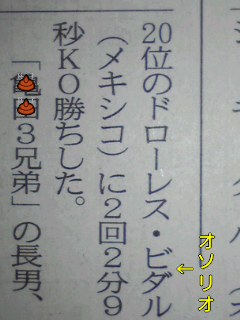 20位のドローレス・ビダル
（メキシコ）に2回2分9
秒KO勝ちした。
「３兄弟」の長男、
←オソリオ